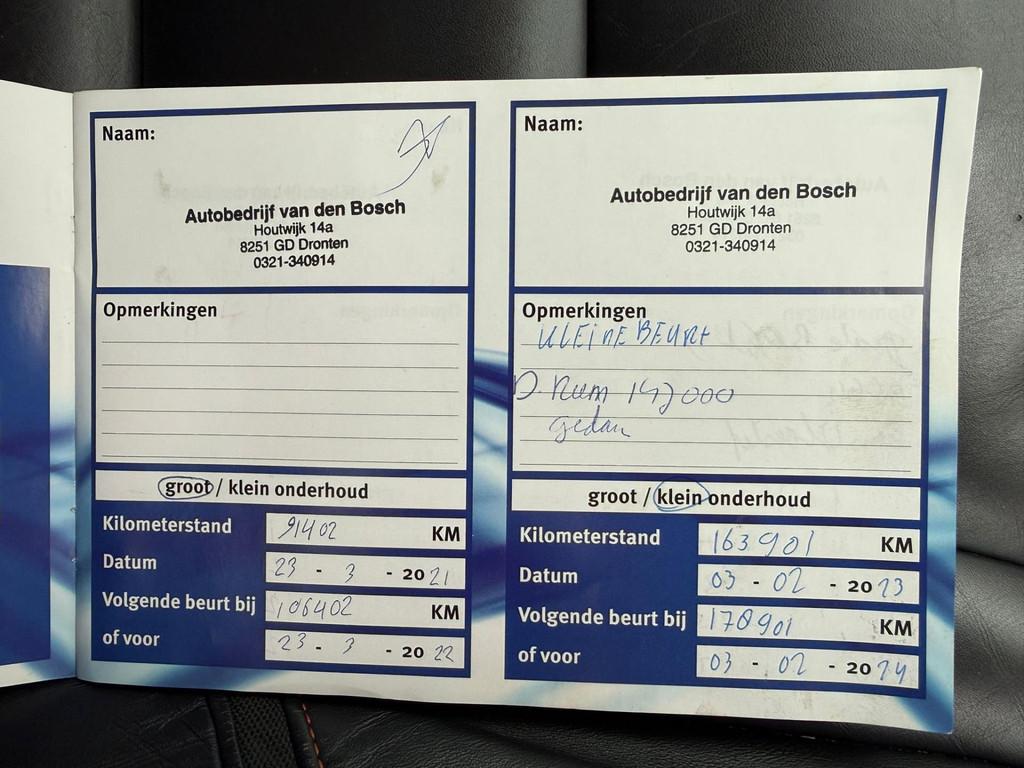 Naam:
Autobedrijf van den Bosch
Houtwijk 14a
8251 GD Dronten
0321-340914
Opmerkingen
groot / klein onderhoud
Kilometerstand 91402 KM
Datum 23 - 3 - 2021
Volgende beurt bij 106402 KM
of voor 23 - 3 - 2022
Naam:
Autobedrijf van den Bosch
Houtwijk 14a
8251 GD Dronten
0321-340914
Opmerkingen
KLEiNE BEURt
D. Riem 147000
gedaan
groot / klein onderhoud
Kilometerstand 163901 KM
Datum 03 - 02 - 2023
Volgende beurt bij 178901 KM
of voor 03 - 02 - 2024